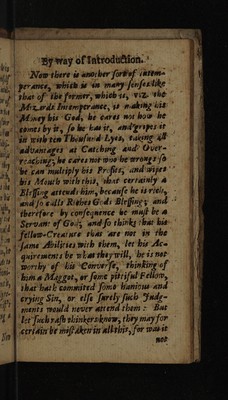 By way of Introduction.
Now there is another sort of intem-
perance, which is in many senses like
that of the former, which is, viz. the
Mizerds Intemperance, is making his
Money his God, he cares not how he
comes by it, so he has it, and gripes it
in with ten Thousand Eyes, taking all
advantages at Catching and Over-
reaching; he cares not who he wrongs so
he can multiply his Profits, and wipes
his Mouth with this, that certainly a
Blessing attends him, because he is rich,
and so calls Riches Gods Blessing; and
therefore by consequence he must be a
Servant of God; and so thinks that his
fellow-Creature that are not in the
same Abilities with them, let his Ac-
quirements be what they will, he is not
worthy of his Converse, thinking of
him a Maggot, or some pitiful Fellow,
that hath commited some hanious and
crying Sin, or else surely such Judg-
ments would never attend them: But
let such rash thinkers know, they may for
certain be mistaken in all this, for was it
not